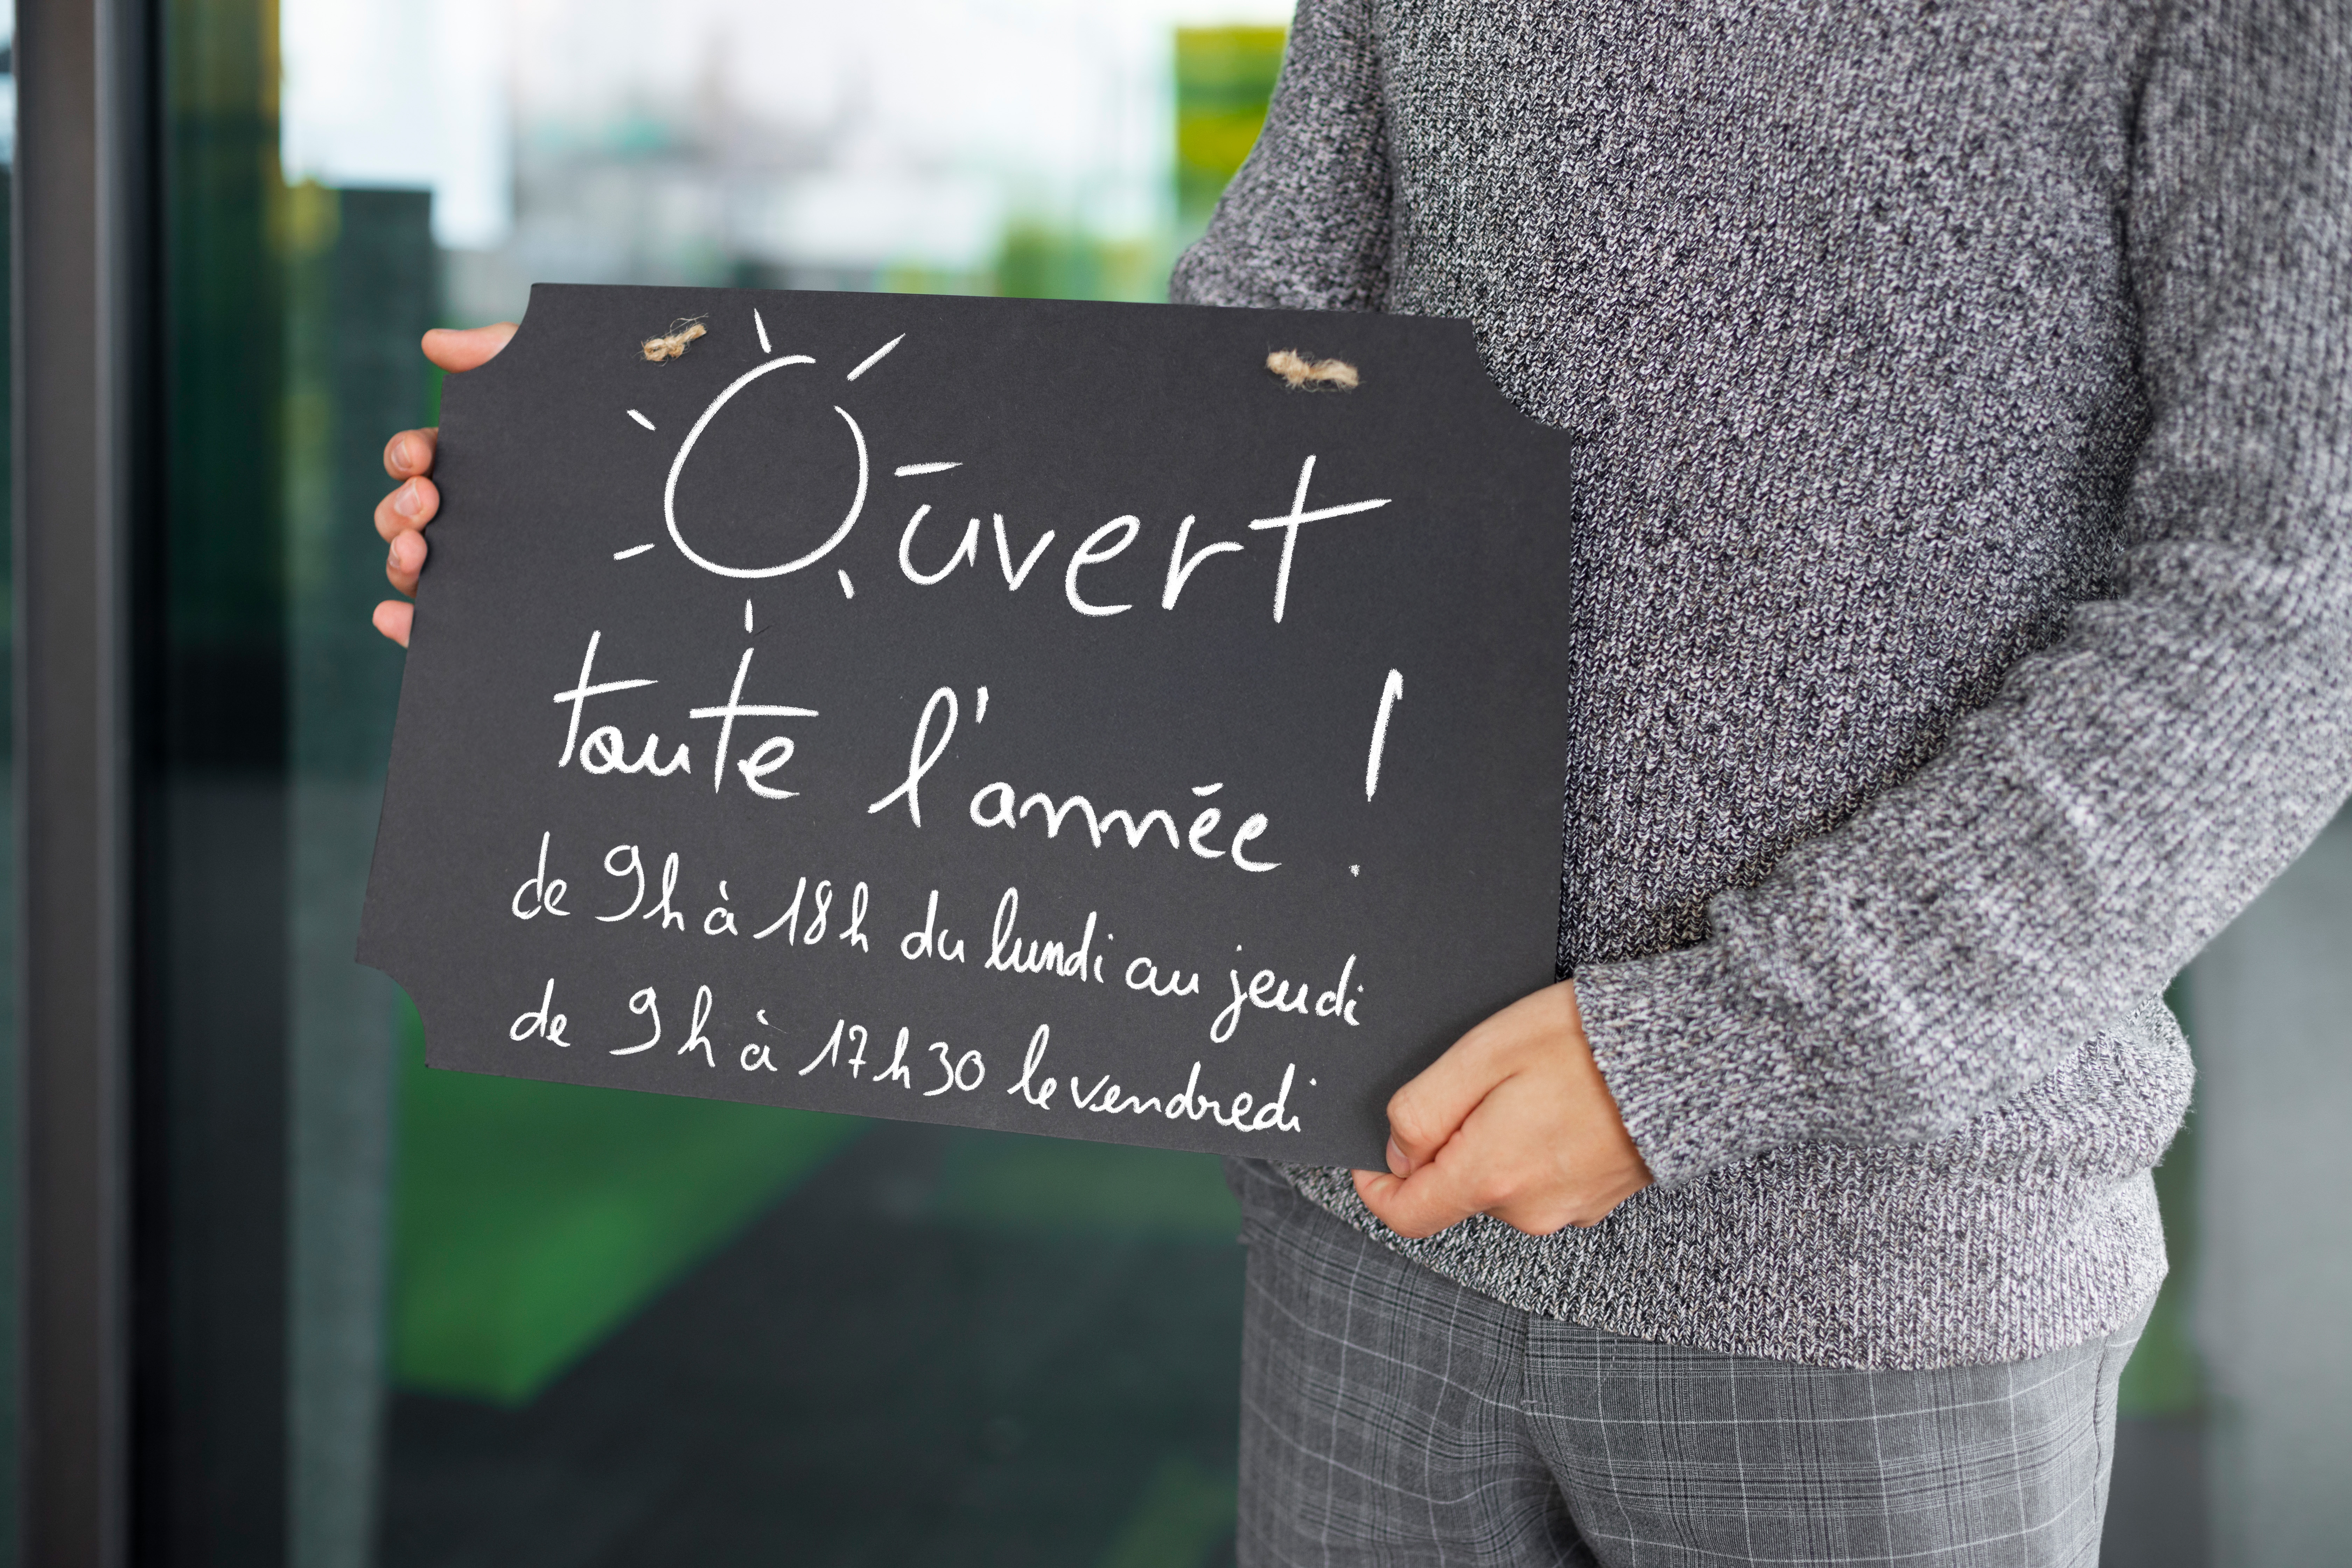 Ouvert
toute l'année !
de 9h à 18h du lundi au jeudi
de 9h à 17h30 le vendredi